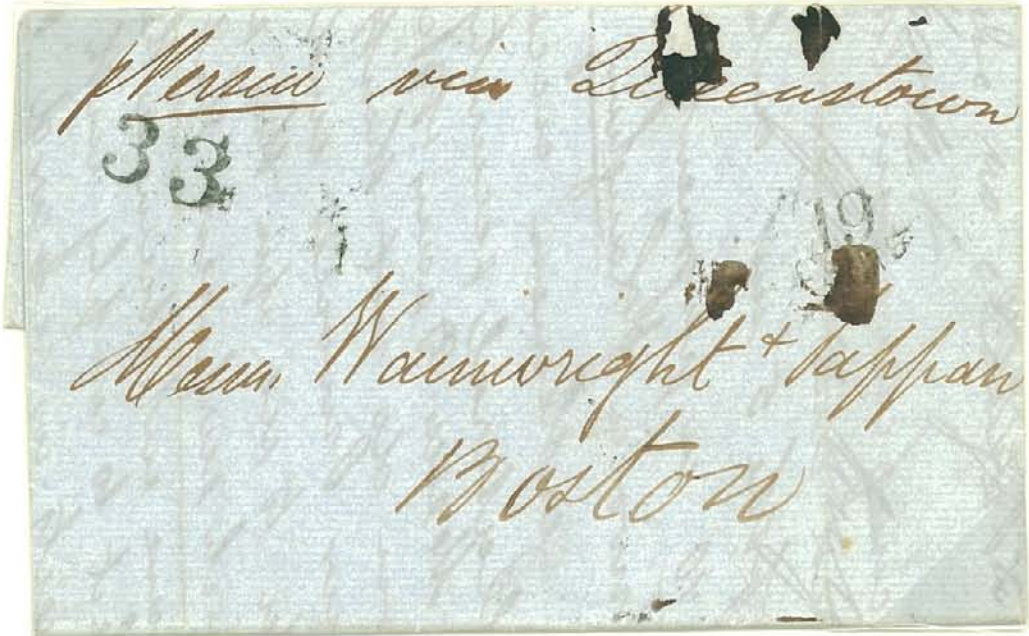 p Persia via Queenstown
33
19
Messrs. Wainwright + Tappan
Boston